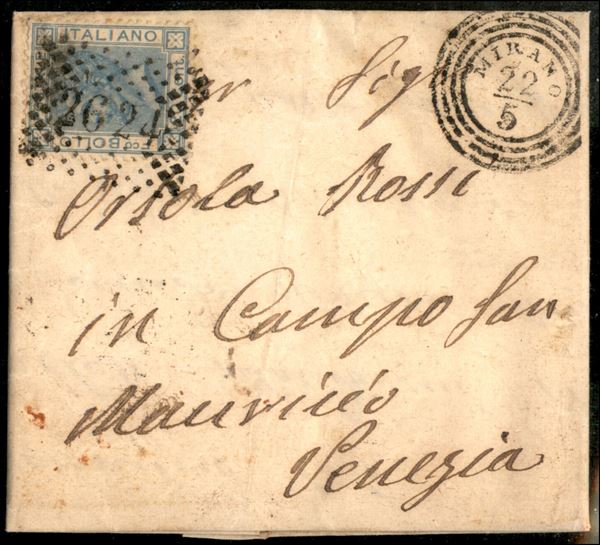 ITALIANO
2624
F.co BOLLO
MIRANO
22
5
Per Sigra
Orsola Rossi
in Campo San
Maurizio
Venezia